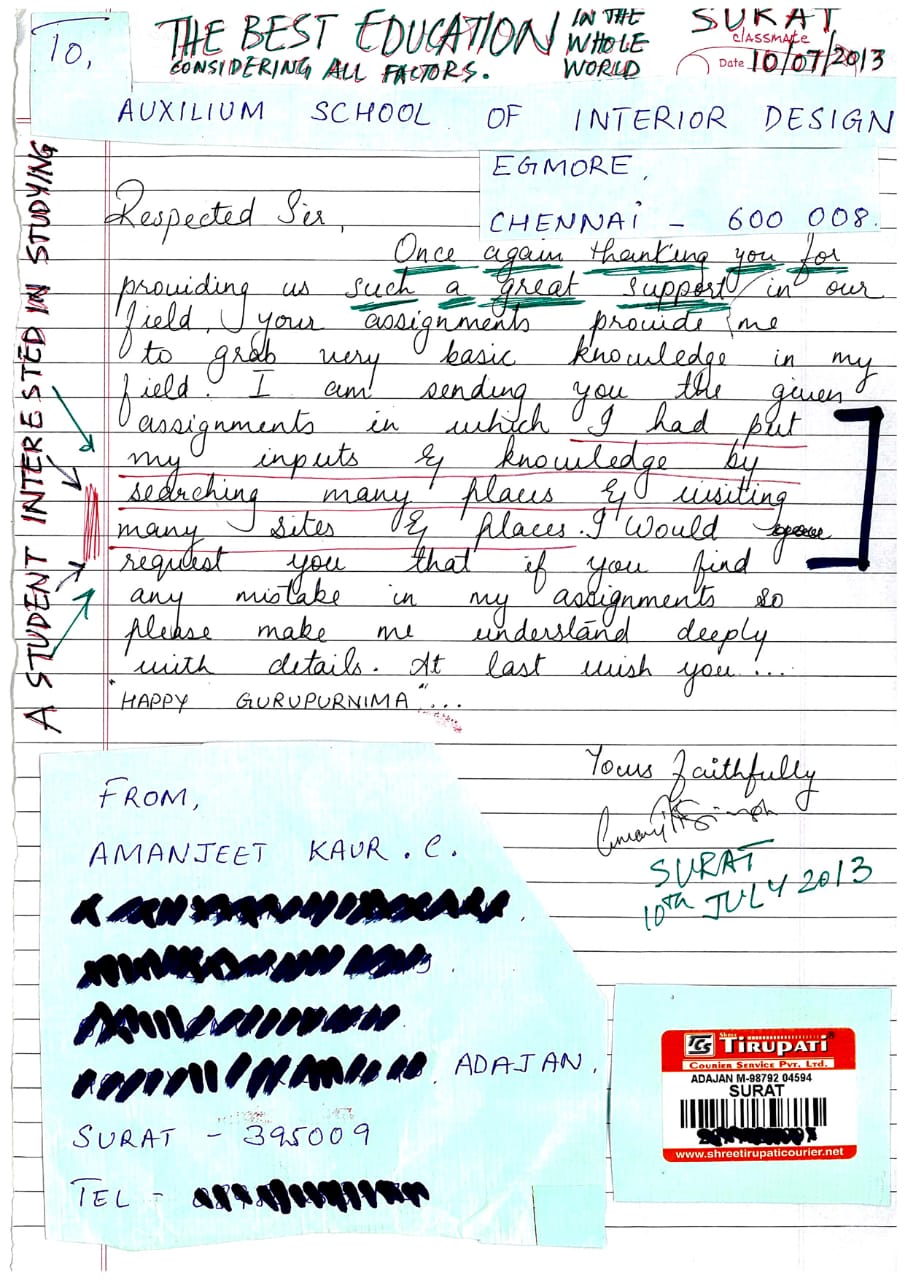 To,
THE BEST EDUCATION IN THE WHOLE WORLD
CONSIDERING ALL FACTORS.
SURAT
classmate
Date 10/07/2013
AUXILIUM SCHOOL OF INTERIOR DESIGN
EGMORE,
CHENNAI - 600 008.
A STUDENT INTERESTED IN STUDYING
Respected Sir,
Once again thanking you for
providing us such a great support in our
field, your assignments provide me
to grab very basic knowledge in my
field. I am sending you the given
assignments in which I had put
my inputs & knowledge by
searching many places & visiting
many sites & places. I would
request you that if you find
any mistake in my assignments so
please make me understand deeply
with details. At last wish you...
"HAPPY GURUPURNIMA"...
Yours faithfully
SURAT
10th JULY 2013
FROM,
AMANJEET KAUR. C.
ADAJAN.
SURAT - 395009
TEL -
Shree
TIRUPATI
Courier Service Pvt. Ltd.
ADAJAN M-98792 04594
SURAT
www.shreetirupaticourier.net